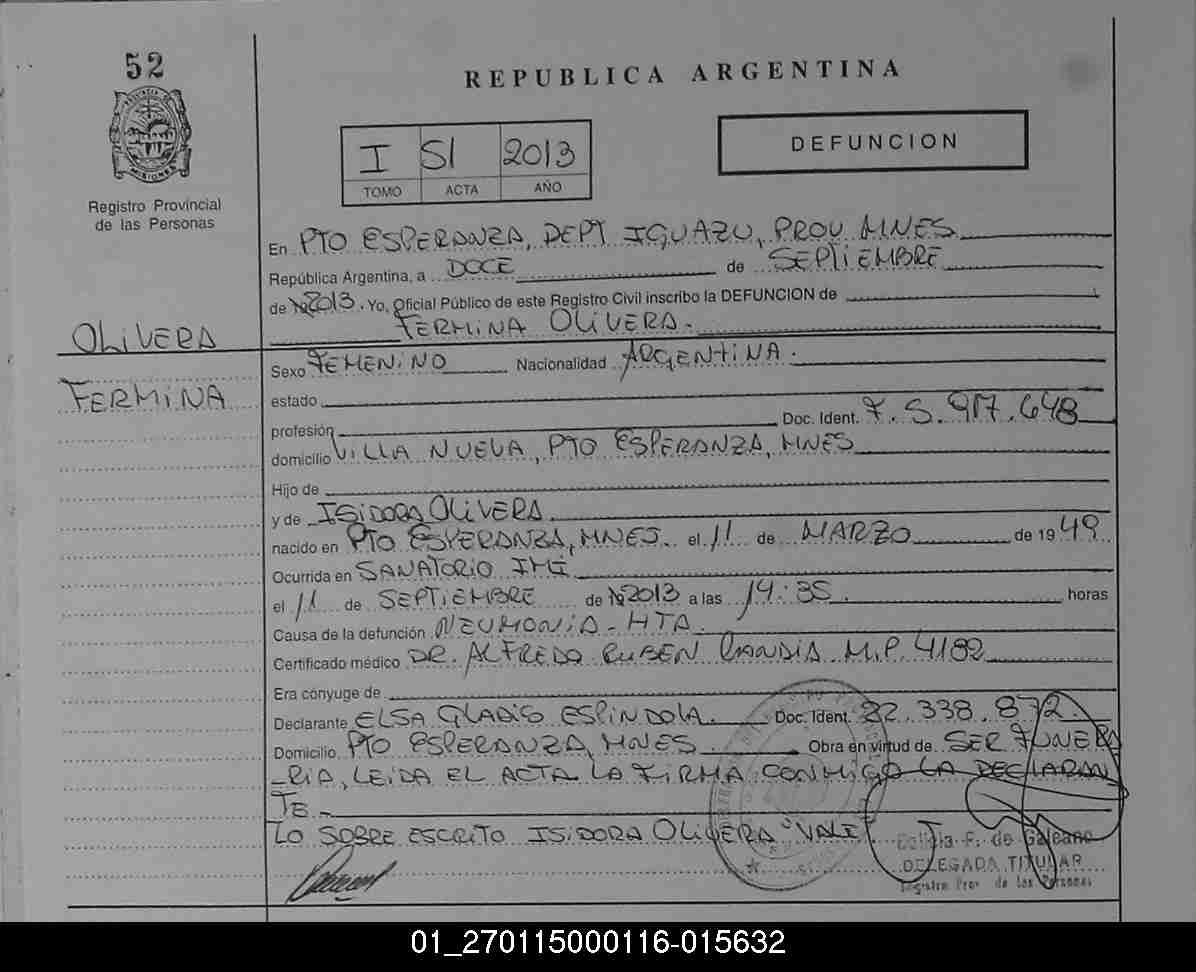 52
PROVINCIA DE
MISIONES
Registro Provincial
de las Personas
REPUBLICA ARGENTINA
I 51 2013
TOMO ACTA AÑO
DEFUNCION
En PTO ESPERANZA, DEPT IGUAZU, PROV MNES
República Argentina, a DOCE de SEPTIEMBRE
de 2013. Yo, Oficial Público de este Registro Civil inscribo la DEFUNCION de
FERMINA OLIVERA.
OLIVERA
FERMINA
Sexo FEMENINO Nacionalidad ARGENTINA.
estado
profesión Doc. Ident. F. 5.917.648
domicilio VILLA NUEVA, PTO ESPERANZA, MNES
Hijo de
y de ISIDORA OLIVERA
nacido en PTO ESPERANZA, MNES. el 11 de MARZO de 1949
Ocurrida en SANATORIO IMI
el 11 de SEPTIEMBRE de 2013 a las 14:35. horas
Causa de la defunción NEUMONIA - HTA.
Certificado médico DR. ALFREDO RUBEN CANDIA M.P. 4182
Era cónyuge de
Declarante ELSA GLADIS ESPINDOLA. Doc. Ident. 22.338.872.
Domicilio PTO ESPERANZA, MNES Obra en virtud de SER FUNERA
-RIA, LEIDA EL ACTA LA FIRMA CONMIGO LA DECLARAN
TE.-
LO SOBRE ESCRITO ISIDORA OLIVERA "VALE"
F. de Galeano
DELEGADA TITULAR
Registro Prov. de las Personas
01_270115000116-015632